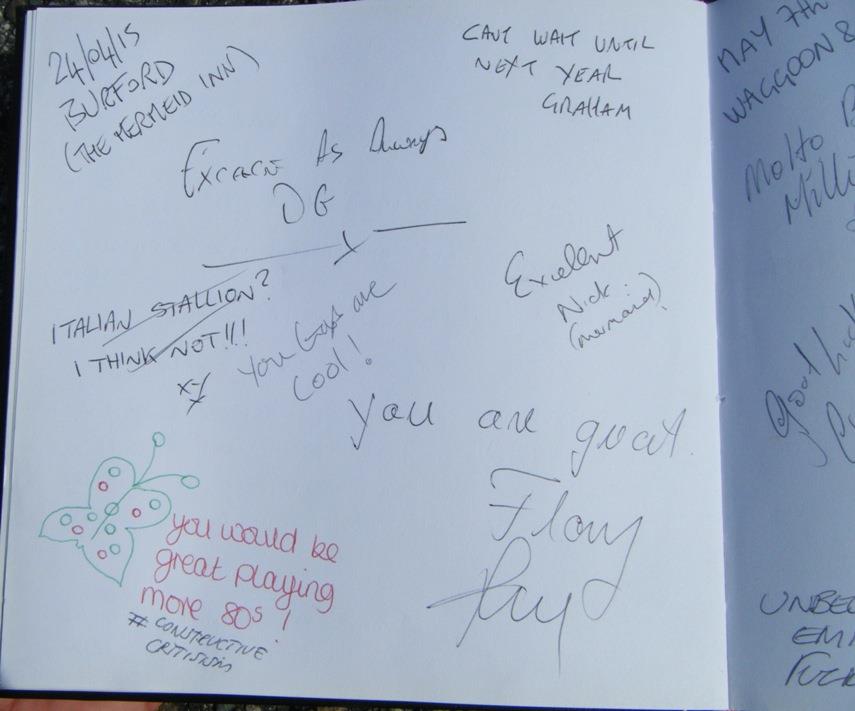 24/04/15
BURFORD
(THE MERMEID INN)
CANT WAIT UNTIL
NEXT YEAR
GRAHAM
As Always
DG
ITALIAN STALLION?
I THINK NOT!!!
You Guys are
cool!
Excellent
Nick
(mermaid)
you are great
you would be
great playing
more 80s!
# CONSTRUCTIVE
CRITISISM
MAY 7th
WAGGOON &
Molto
Milli
good
UNBE
EM
FUCK